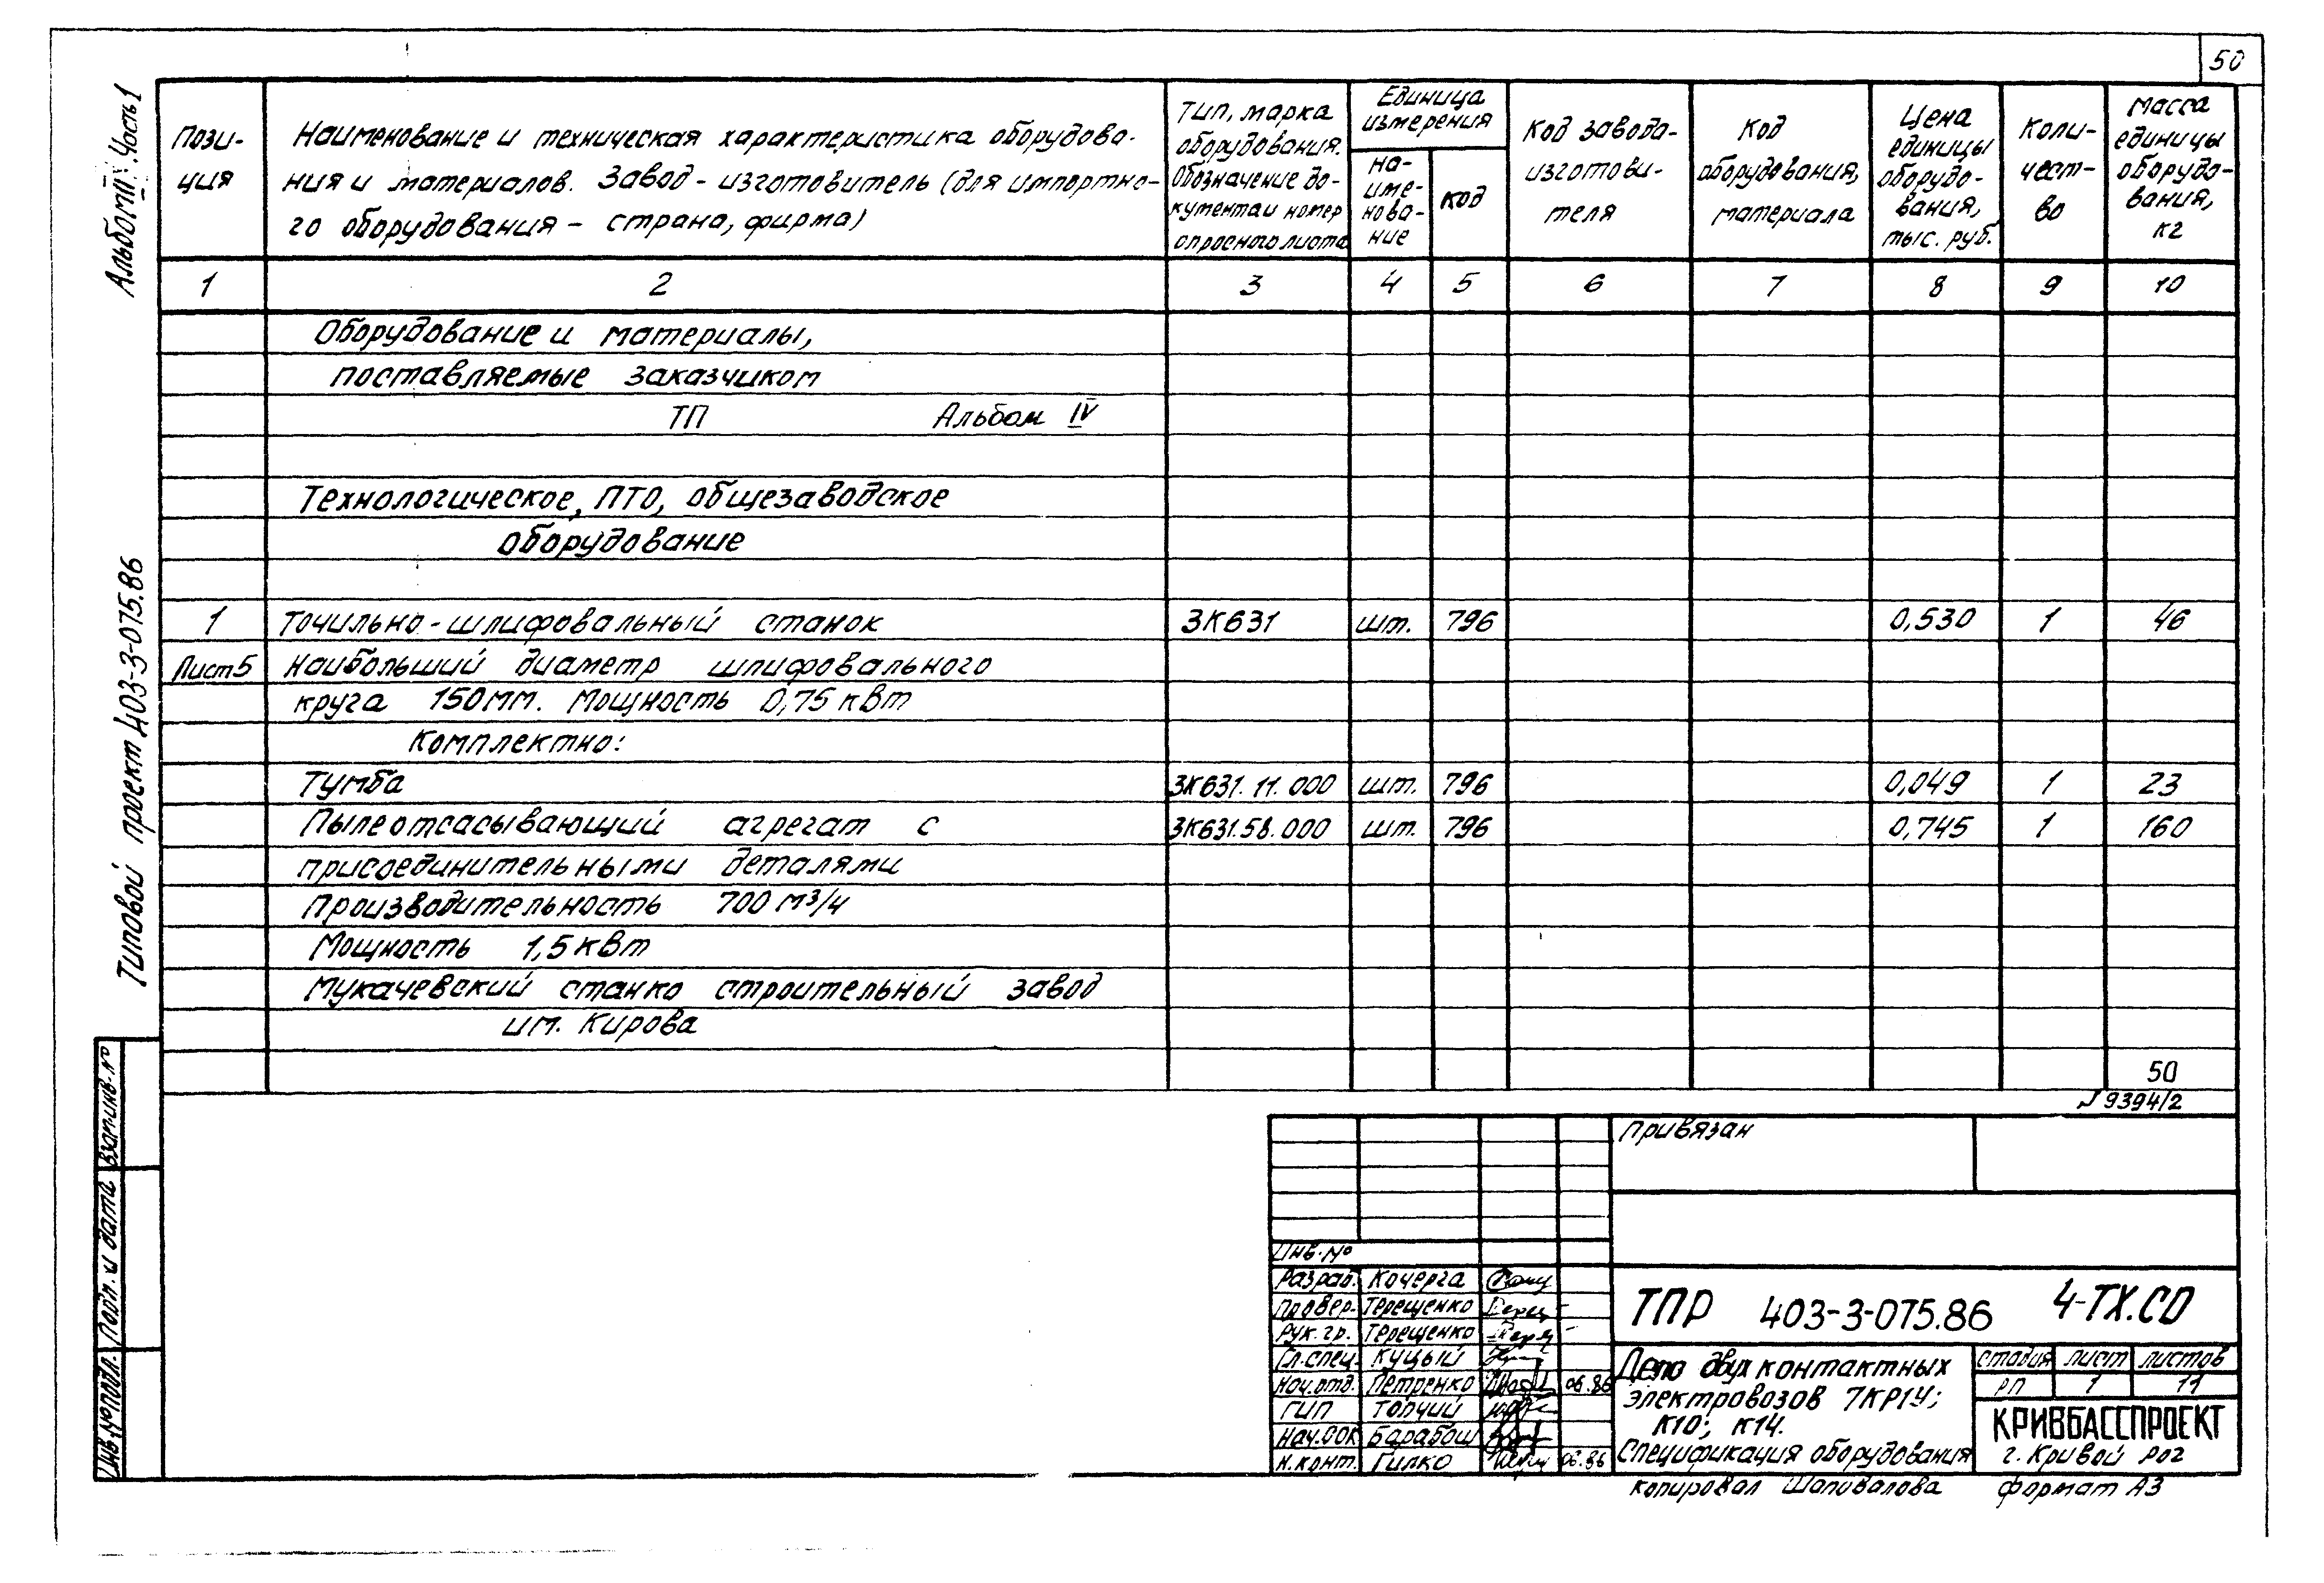 50
Альбом III Часть 1
Типовой проект 403-3-075.86
Пози-
ция
Наименование и техническая характеристика оборудова-
ния и материалов. Завод-изготовитель (для импортно-
го оборудования - страна, фирма)
Тип, марка
оборудования.
Обозначение до-
кумента и номер
опросного листа
Единица
измерения
на-
име-
нова-
ние
код
Код завода-
изготови-
теля
Код
оборудования,
материала
Цена
единицы
оборудо-
вания,
тыс. руб.
Коли-
чест-
во
Масса
единицы
оборудо-
вания,
кг
1 2 3 4 5 6 7 8 9 10
Оборудование и материалы,
поставляемые заказчиком
ТП Альбом IV
Технологическое, ПТО, общезаводское
оборудование
1 Точильно-шлифовальный станок 3К631 шт. 796 0,530 1 46
Лист 5 Наибольший диаметр шлифовального
круга 150мм. Мощность 0,75 кВт
Комплектно:
Тумба 3К631.11.000 шт. 796 0,049 1 23
Пылеотсасывающий агрегат с 3К631.58.000 шт. 796 0,745 1 160
присоединительными деталями
Производительность 700 м³/ч
Мощность 1,5 кВт
Мукачевский станко строительный завод
им. Кирова
50
9394/2
Взам.инв.№
Подп. и дата
Инв.№подл.
Привязан
Инв.№
Разраб. Кочерга
Провер. Терещенко
Рук. гр. Терещенко
Гл.спец. Куцый
Нач.отд. Петренко 06.86
ГИП Топчий
Нач.ООК Барабаш
Н.контр. Гилко 06.86
ТПР 403-3-075.86 4-ТХ.СО
Депо двух контактных
электровозов 7КР1У;
К10; К14.
Спецификация оборудования
стадия лист листов
РП 1 11
КРИВБАССПРОЕКТ
г. Кривой Рог
копировал Шаповалова формат А3